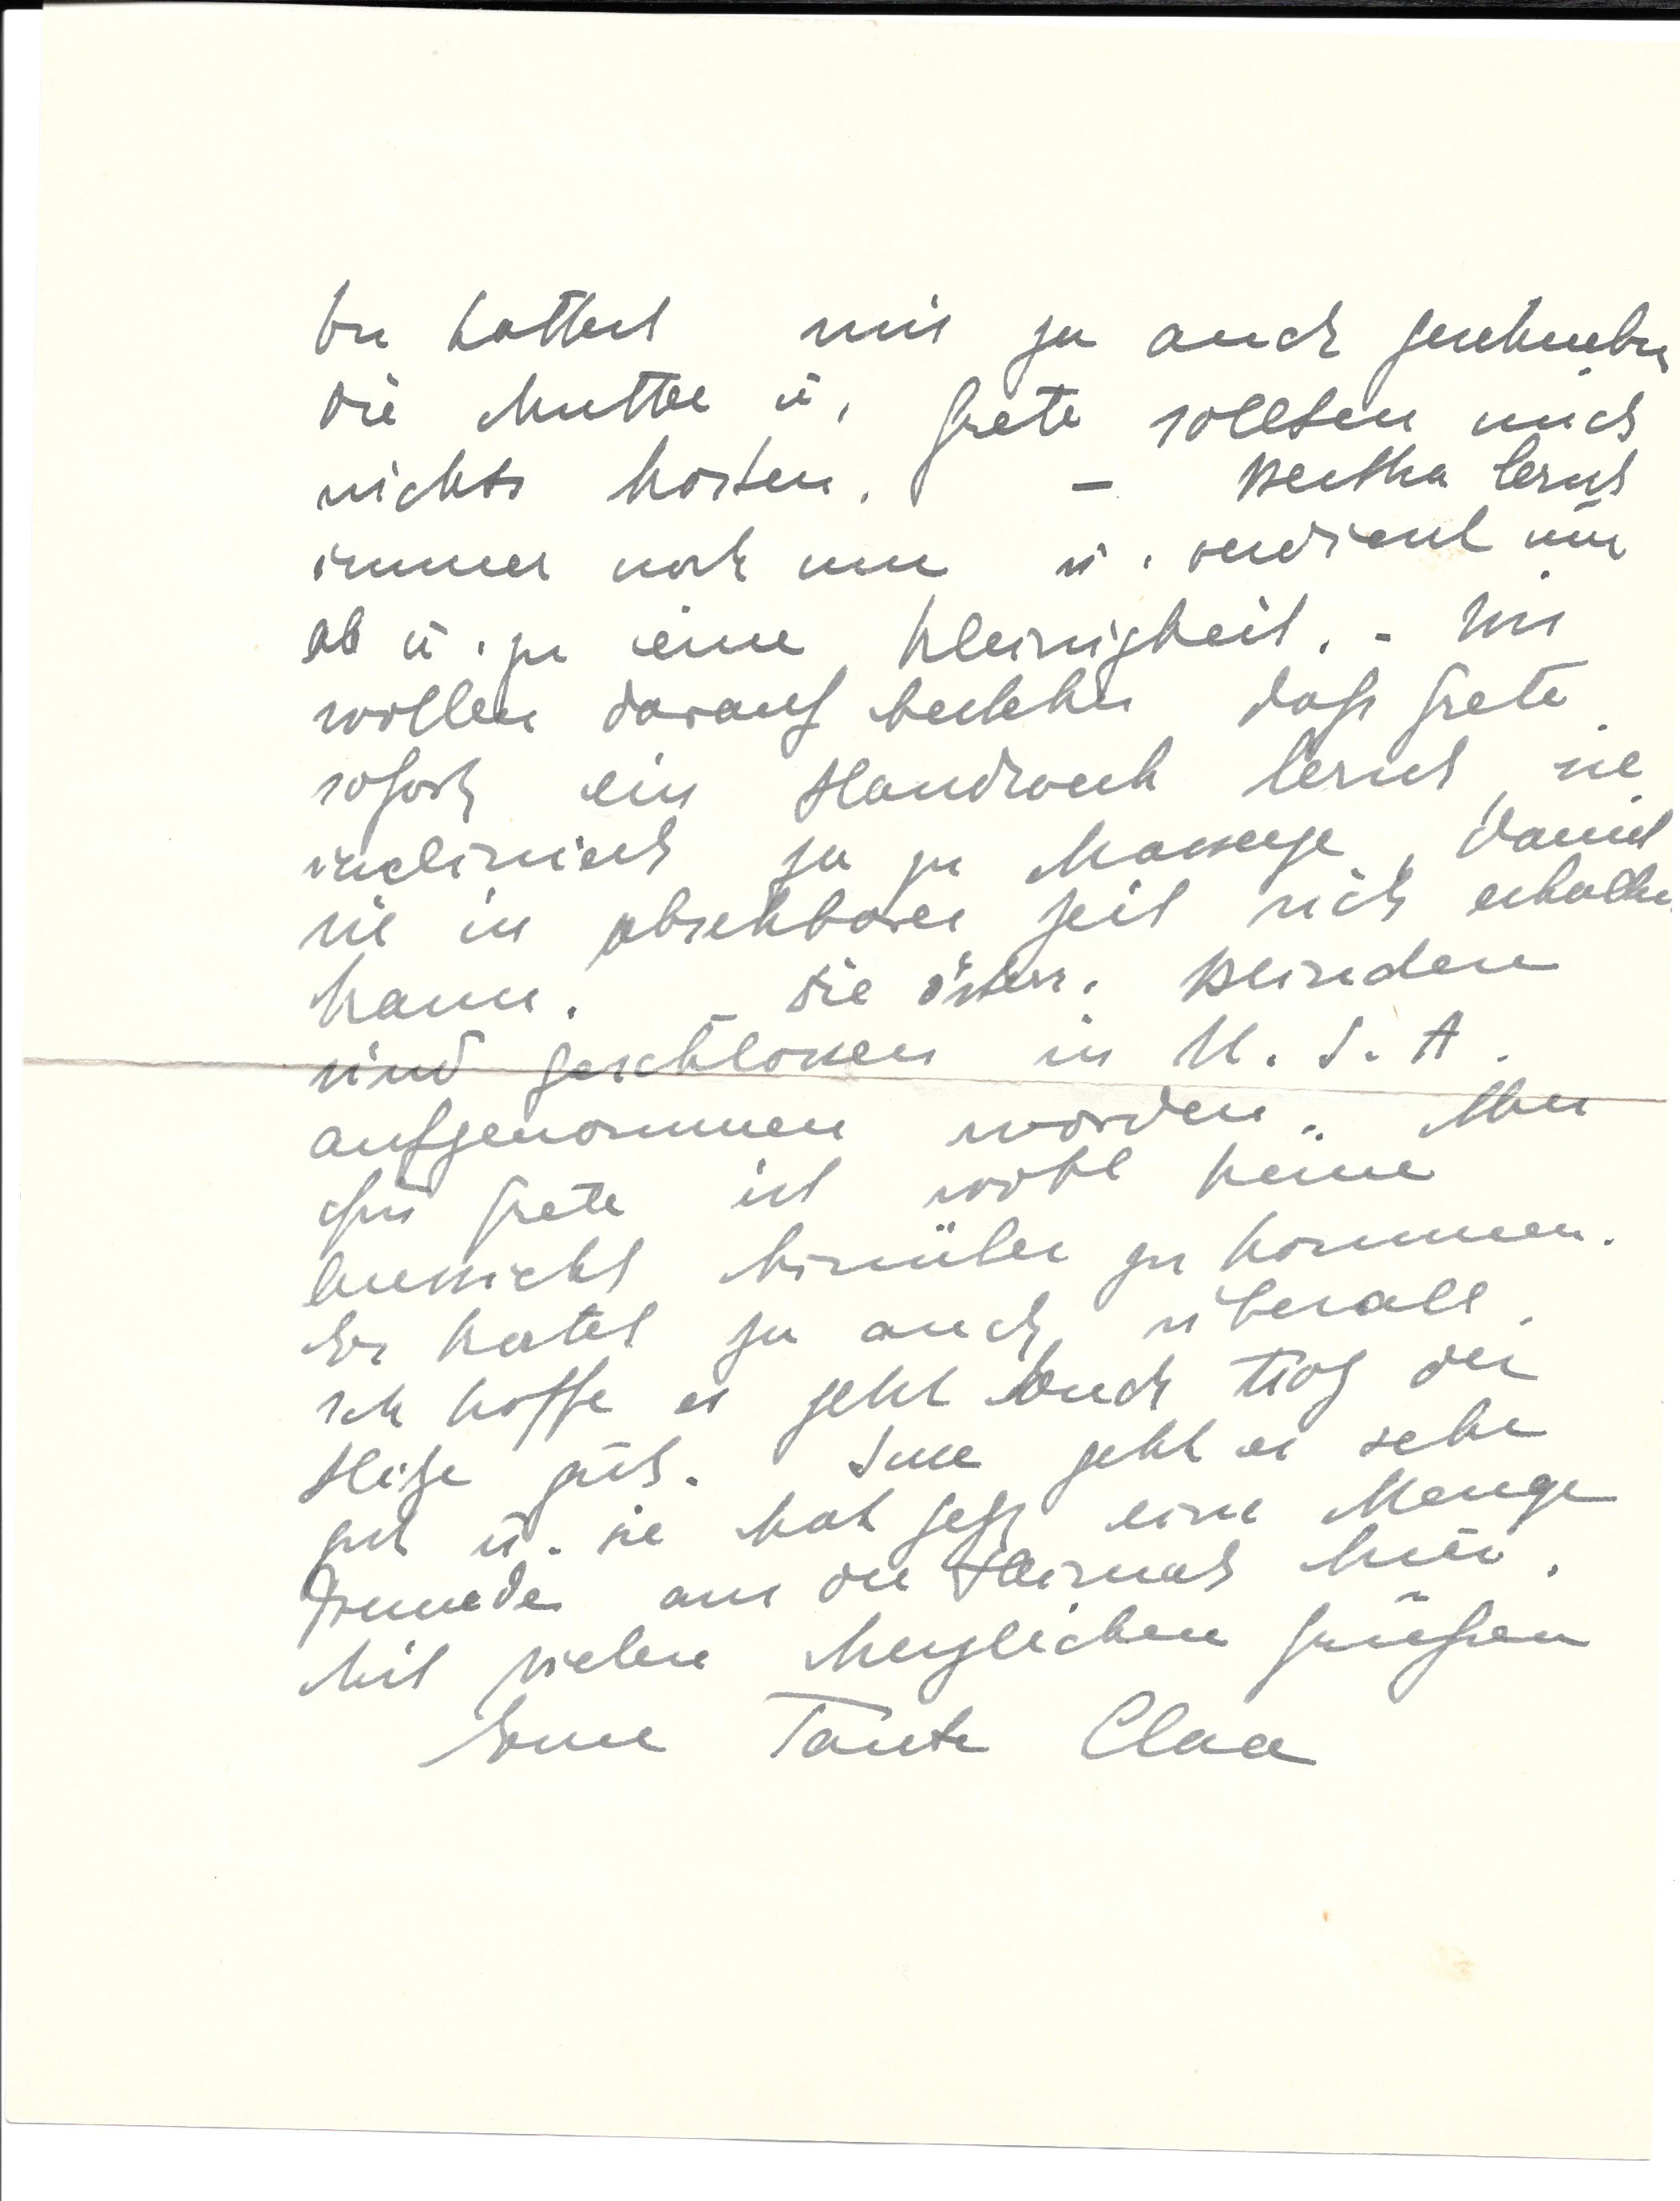 Du hattest mir ja auch geschrieben
die Mutter u. Grete sollten mich
nichts kosten. – Bertha lernt
immer noch um u. verdient nur
ab u. zu eine Kleinigkeit. – Wir
wollen darauf bestehen daß Grete
sofort ein Handwerk lernt, sie
inclinirt ja zu Massage, damit
sie in absehbarer Zeit sich erhalten
kann. – Die österr. Blinden
sind geschlossen in U.S.A.
aufgenommen worden. Aber
für Grete ist wohl keine
Aussicht hinüber zu kommen.
Es kostet ja auch überall.
Ich hoffe es geht Euch trotz der
Hitze gut. Suse geht es sehr
gut u. sie hat jetzt eine Menge
Freunde aus der Heimat hier.
Mit vielen herzlichen Grüßen
Eure Tante Claa